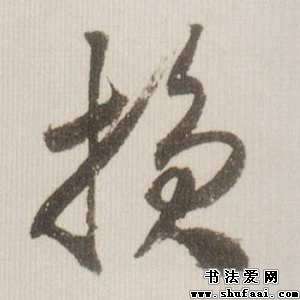 损
书法爱网
www.shufaai.com